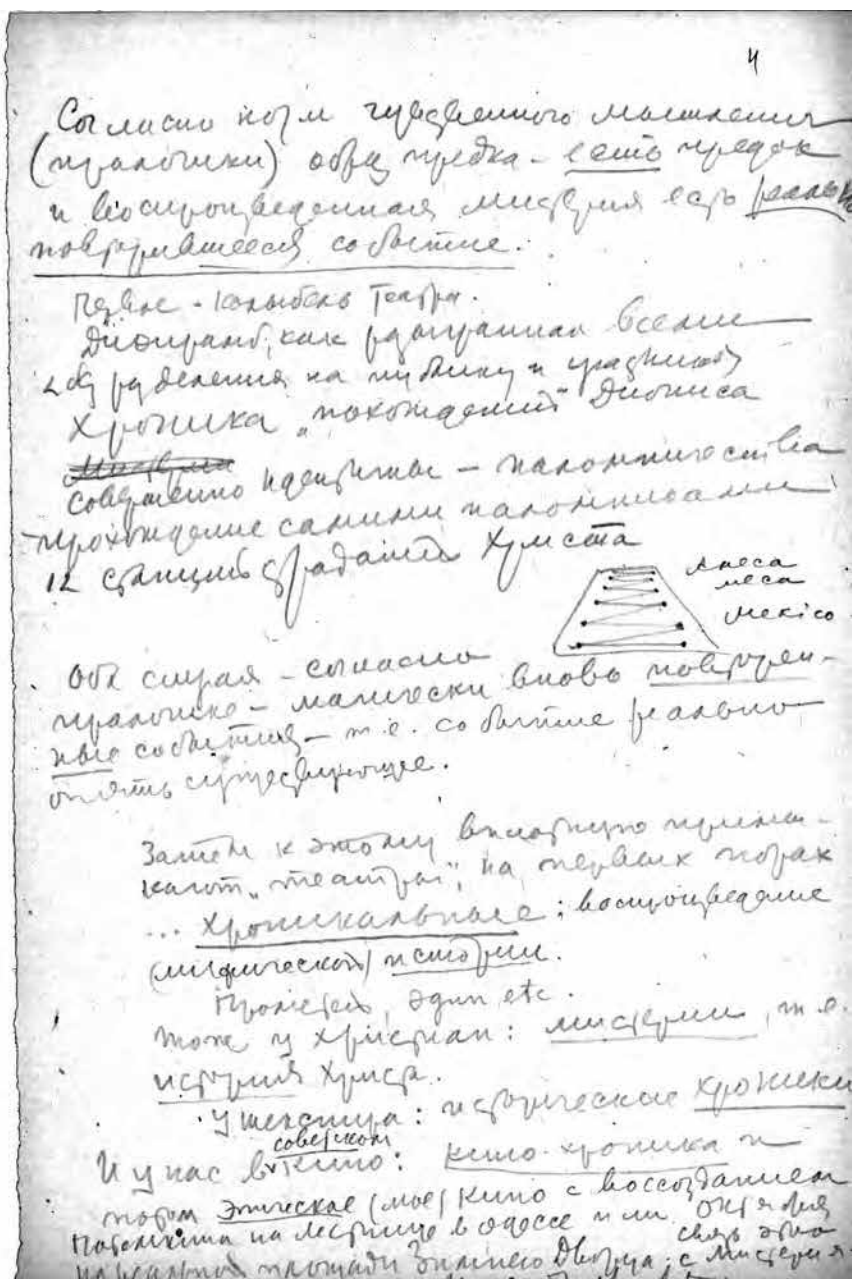 4
Согласно норм чувственного мышления
(пралогики) образ предка – есть предок
и воспроизведенная мистерия есть реально
повторившееся событие.
колыбель театра.
Дифирамб, как разыгранная всеми
без разделения на публику и участников
хроника „похождений“ Диониса
Мистерии
Совершенно идентичны – паломничества
прохождение самими паломниками
12 станций страдания Христа
меса
Мекіco
Оба случая – согласно
пралогике – магически вновь повторен-
ные события – т.е. событие реально
опять существующее.
Затем к этому вплотную примы-
кают „театры“, на первых порах
... хроникальные: воспроизведение
(мифической) истории.
Прометей, Эдип, etc.
Тоже у христиан: мистерии, т.е.
история Христа.
У Шекспира: исторические хроники
И у нас в советском кино: кино-хроника и
потом эпическое (мое) кино с воссозданием
Потемкина на лестнице в Одессе или Октября
на реальной площади Зимнего Дворца; связь этого с мистерия-